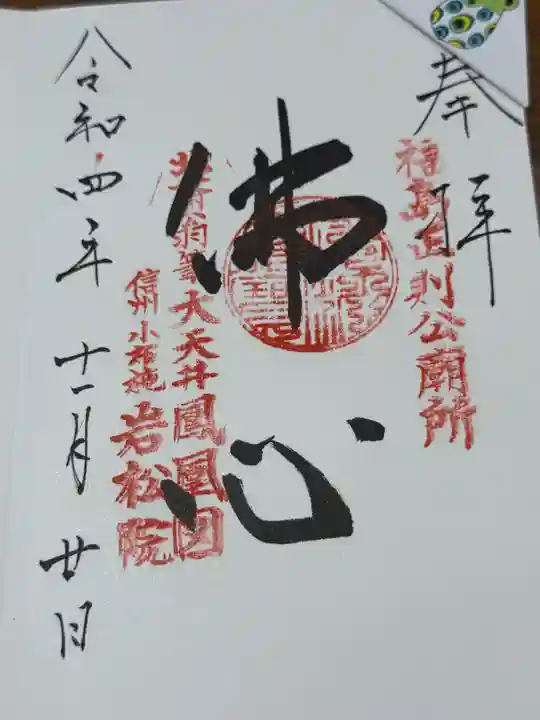 奉拝
福島正則公廟所
佛心
北斎翁筆大天井鳳凰図
信州小布施岩松院
令和四年十一月廿日